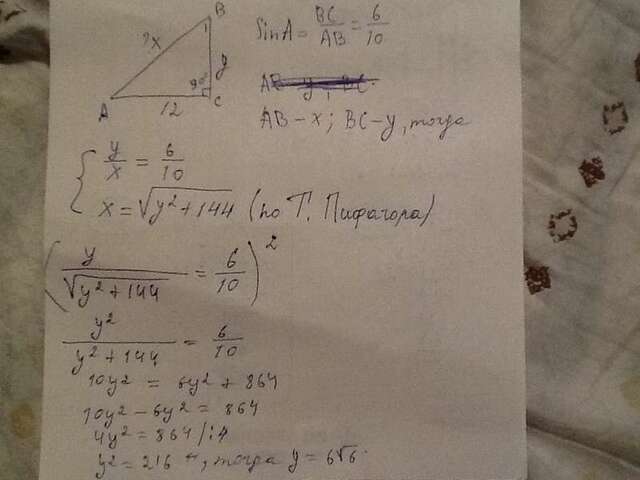 B
?x
1
y
90°
A
12
C
SinA = BC/AB = 6/10
AB – x; BC – y, тогда
{ y/x = 6/10
x = √(y²+144) (по Т. Пифагора)
( y/√(y²+144) = 6/10 )²
y²/(y²+144) = 6/10
10y² = 6y² + 864
10y² – 6y² = 864
4y² = 864 /:4
y² = 216, тогда y = 6√6.